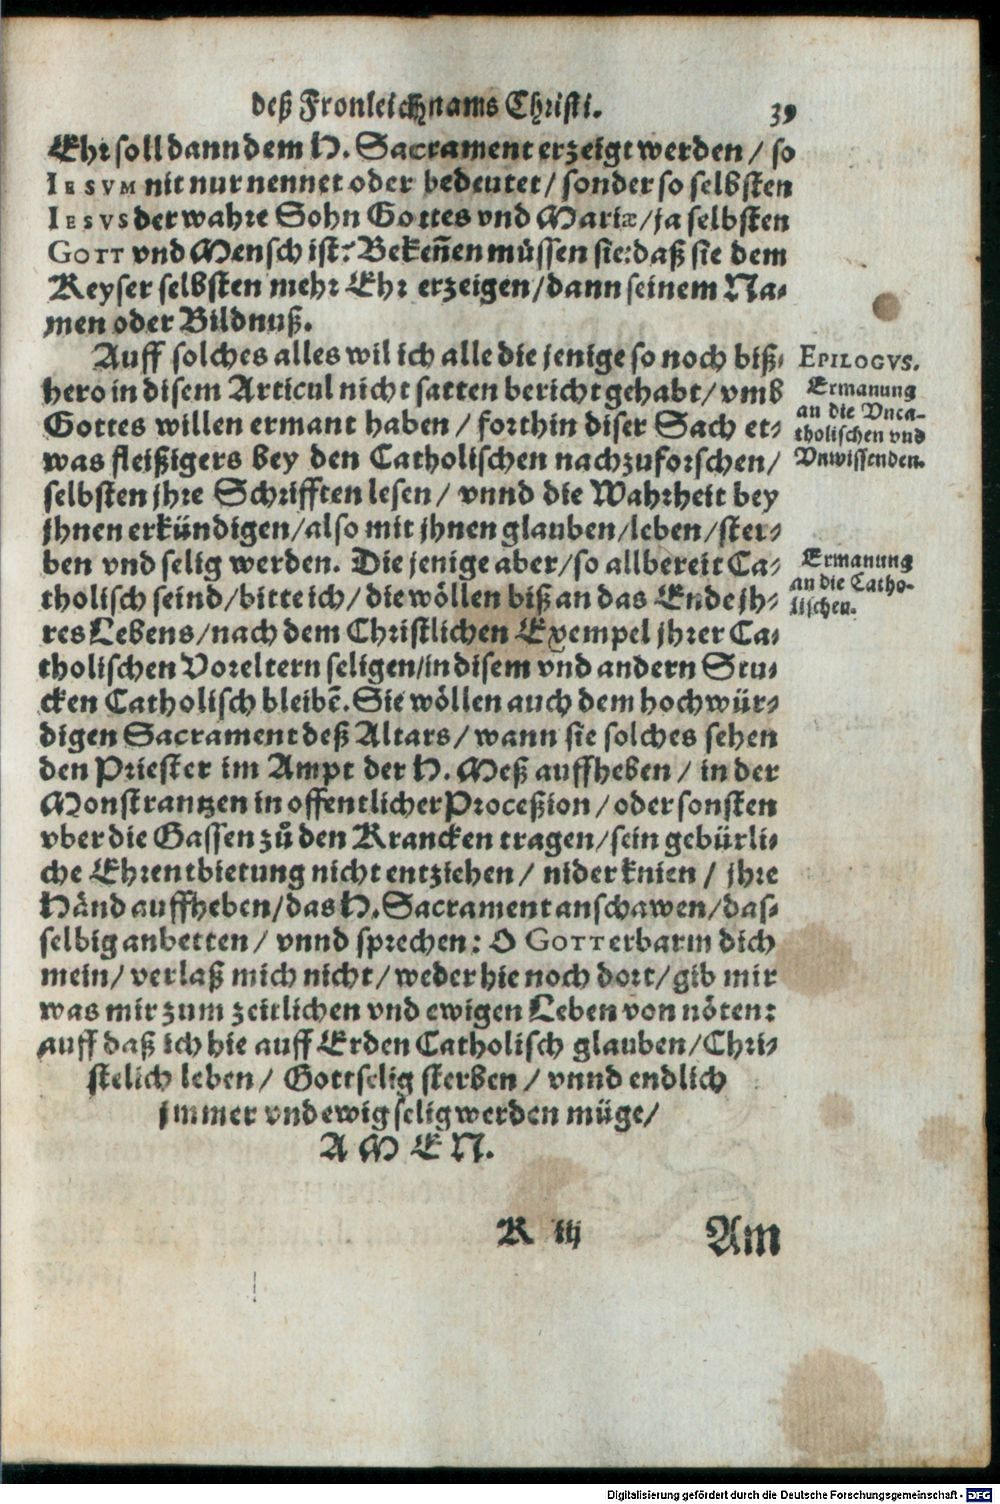 deß Fronleichnams Christi. 39
Ehr soll dann dem H. Sacrament erzeigt werden / so
IESVM nit nur nennet oder bedeutet / sonder so selbsten
IESVS der wahre Sohn Gottes vnd Mariæ / ja selbsten
GOTT vnd Mensch ist? Bekeñen müssen sie: daß sie dem
Keyser selbsten mehr Ehr erzeigen / dann seinem Na-
men oder Bildnuß.
Auff solches alles wil ich alle die jenige so noch biß-
hero in disem Articul nicht satten bericht gehabt / vmb
Gottes willen ermant haben / forthin diser Sach et-
was fleißigers bey den Catholischen nachzuforschen /
selbsten jhre Schrifften lesen / vnnd die Wahrheit bey
jhnen erkündigen / also mit jhnen glauben / leben / ster-
ben vnd selig werden. Die jenige aber / so allbereit Ca-
tholisch seind / bitte ich / die wöllen biß an das Ende jh-
res Lebens / nach dem Christlichen Exempel jhrer Ca-
tholischen Voreltern seligen / in disem vnd andern Stu-
cken Catholisch bleibẽ. Sie wöllen auch dem hochwür-
digen Sacrament deß Altars / wann sie solches sehen
den Priester im Ampt der H. Meß auffheben / in der
Monstrantzen in offentlicher Proceßion / oder sonsten
vber die Gassen zů den Krancken tragen / sein gebürli-
che Ehrentbietung nicht entziehen / nider knien / jhre
Händ auffheben / das H. Sacrament anschawen / das-
selbig anbetten / vnnd sprechen: O GOTT erbarm dich
mein / verlaß mich nicht / weder hie noch dort / gib mir
was mir zum zeitlichen vnd ewigen Leben von nöten:
auff daß ich hie auff Erden Catholisch glauben / Chri-
stelich leben / Gottselig sterben / vnnd endlich
jmmer vnd ewig selig werden müge /
AMEN.
EPILOGVS.
Ermanung
an die Vnca-
tholischen vnd
Vnwissenden.
Ermanung
an die Catho-
lischen.
K iij Am
Digitalisierung gefördert durch die Deutsche Forschungsgemeinschaft - DFG